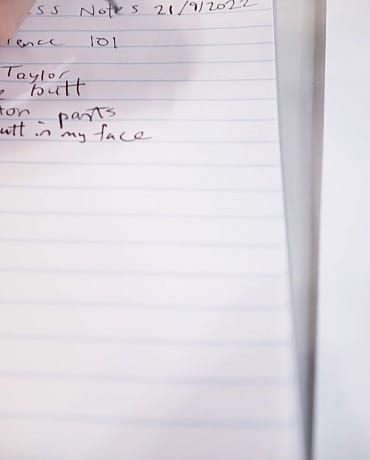 ss Notes 21/9/2022
ience 101
Taylor
butt
on parts
utt in my face